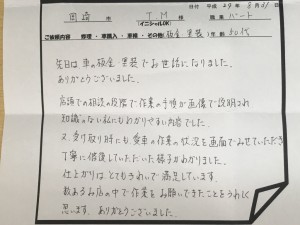 日付 平成 29年 8月31日
岡崎 市 T.M 様 職業 パート
(イニシャルOK)
ご依頼内容 修理・車購入・車検・その他(板金 塗装) 年齢 50代
先日は、車の板金 塗装でお世話になりました。
ありがとうございました。
店頭での相談の段階で作業の手順が画像で説明され
知識のない私にもわかりやすい内容でした。
又、受け取り時にも、愛車の作業の状況を画面でみせていただき
丁寧に修復していただいた様子がわかりました。
仕上がりは、とてもきれいで満足しています。
数あるお店の中で作業をお願いできたことをうれしく
思います。ありがとうございました。